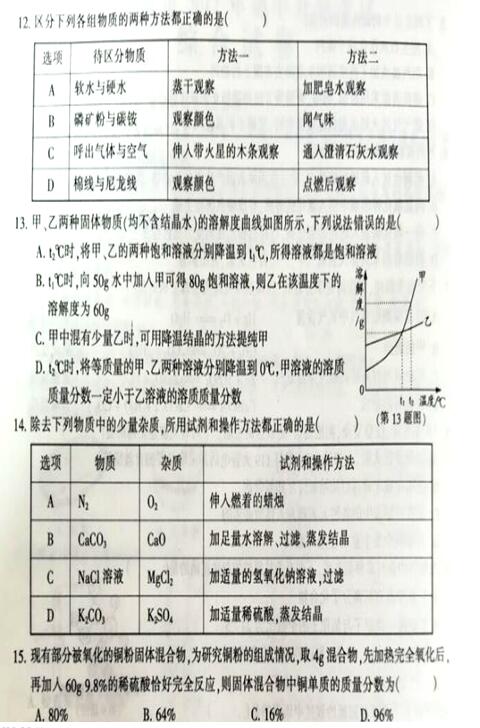 12. 区分下列各组物质的两种方法都正确的是(　　)
选项 待区分物质 方法一 方法二
A 软水与硬水 蒸干观察 加肥皂水观察
B 磷矿粉与碳铵 观察颜色 闻气味
C 呼出气体与空气 伸入带火星的木条观察 通入澄清石灰水观察
D 棉线与尼龙线 观察颜色 点燃后观察
13. 甲、乙两种固体物质(均不含结晶水)的溶解度曲线如图所示,下列说法错误的是(　　)
A. t₂℃时,将甲、乙的两种饱和溶液分别降温到 t₁℃,所得溶液都是饱和溶液
B. t₁℃时,向 50g 水中加入甲可得 80g 饱和溶液,则乙在该温度下的
溶解度为 60g
C. 甲中混有少量乙时,可用降温结晶的方法提纯甲
D. t₂℃时,将等质量的甲、乙两种溶液分别降温到 0℃,甲溶液的溶质
质量分数一定小于乙溶液的溶质质量分数
溶解度/g
甲
乙
0
t₁ t₂ 温度/℃
(第 13 题图)
14. 除去下列物质中的少量杂质,所用试剂和操作方法都正确的是(　　)
选项 物质 杂质 试剂和操作方法
A N₂ O₂ 伸入燃着的蜡烛
B CaCO₃ CaO 加足量水溶解、过滤、蒸发结晶
C NaCl 溶液 MgCl₂ 加适量的氢氧化钠溶液,过滤
D K₂CO₃ K₂SO₄ 加适量稀硫酸,蒸发结晶
15. 现有部分被氧化的铜粉固体混合物,为研究铜粉的组成情况,取 4g 混合物,先加热完全氧化后,
再加入 60g 9.8%的稀硫酸恰好完全反应,则固体混合物中铜单质的质量分数为(　　)
A. 80% B. 64% C. 16% D. 96%